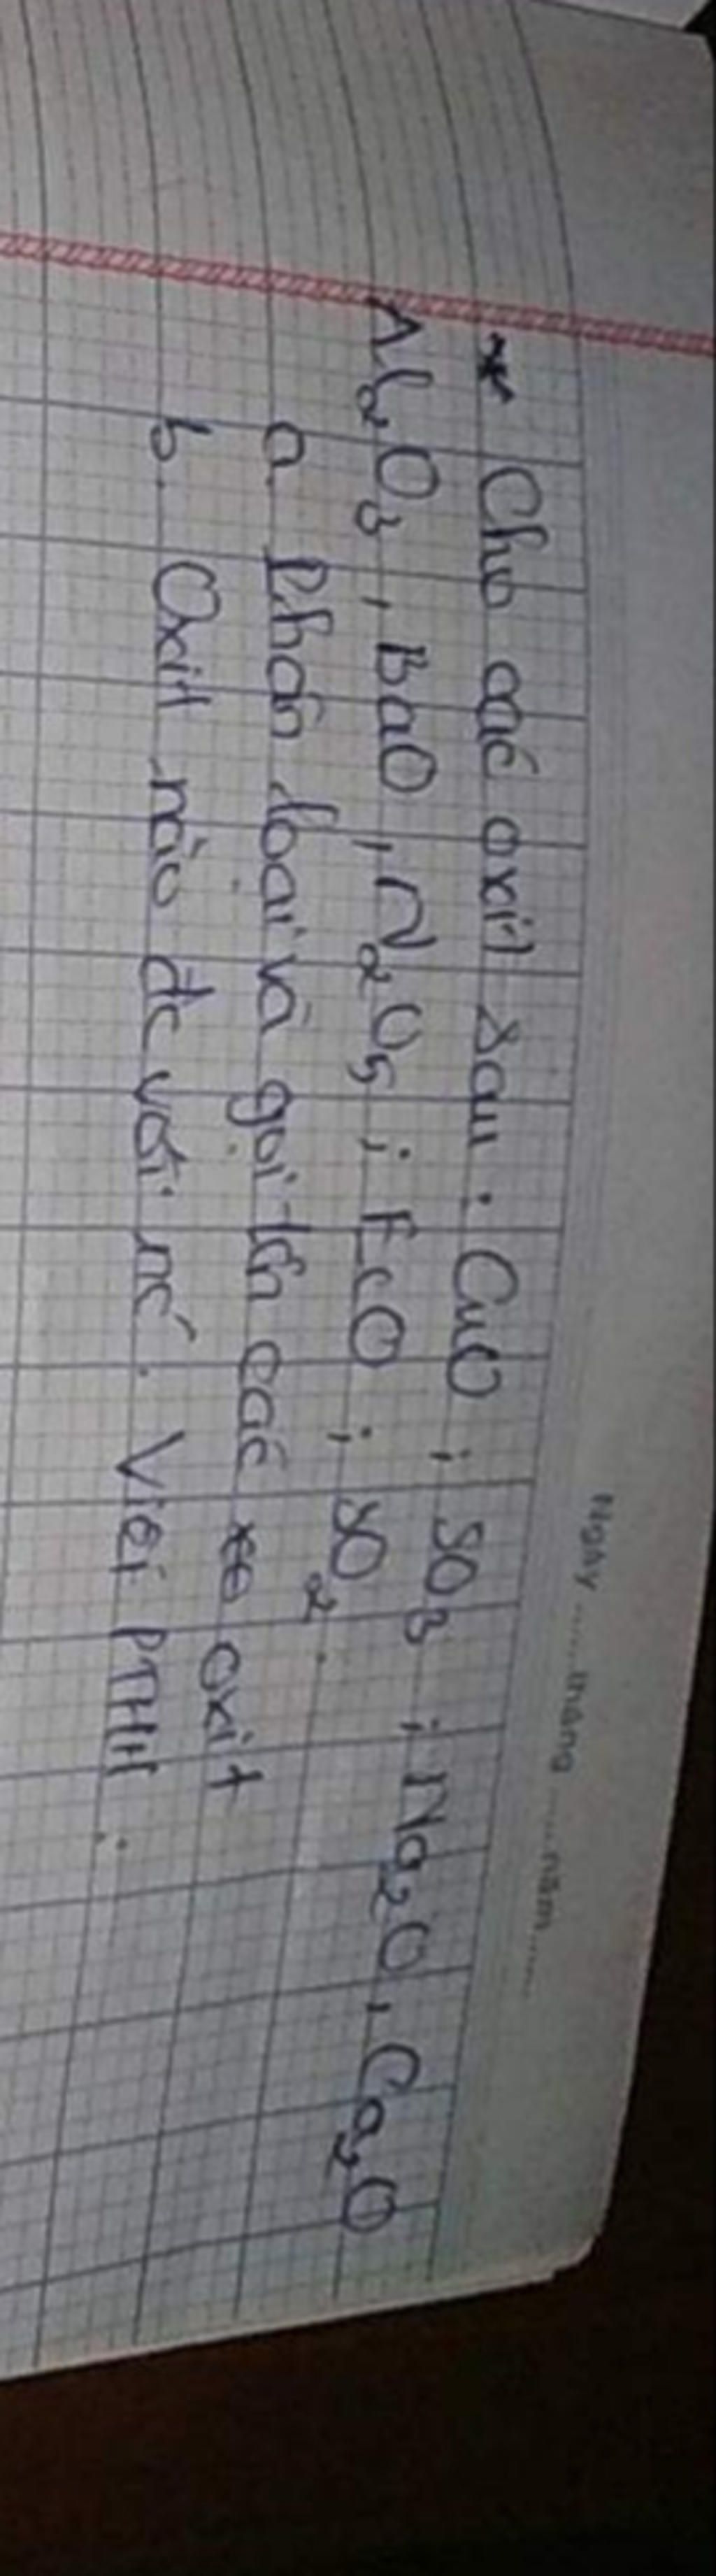 Ngày ...... tháng ...... năm ......
* Cho các oxit sau : CuO ; SO3 ; Na2O , Ca2O
Al2O3 , BaO , N2O5 ; FeO ; SO2 .
a. Phân loại và gọi tên các oxit
b. Oxit nào đc với nc. Viết PTHH :